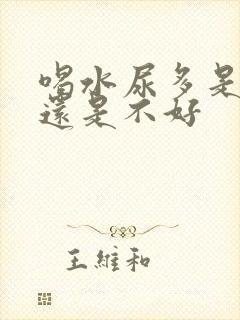 喝水尿多是
還是不好
王維和